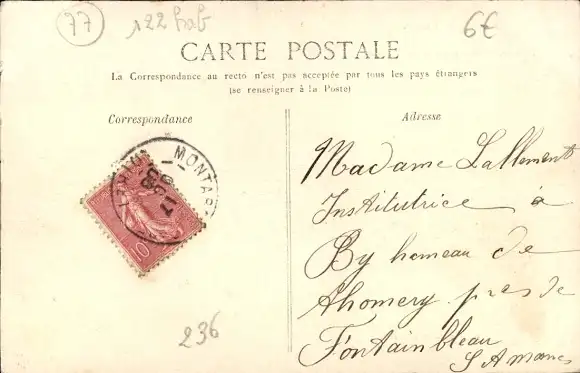 77
122 hab
6€
CARTE POSTALE
La Correspondance au recto n'est pas acceptée par tous les pays étrangers
(se renseigner à la Poste)
Correspondance
Adresse
MONTAR
10
Madame Lallement
Institutrice à
By hameau de
Thomery pres de
Fontainbleau
S Marne
236